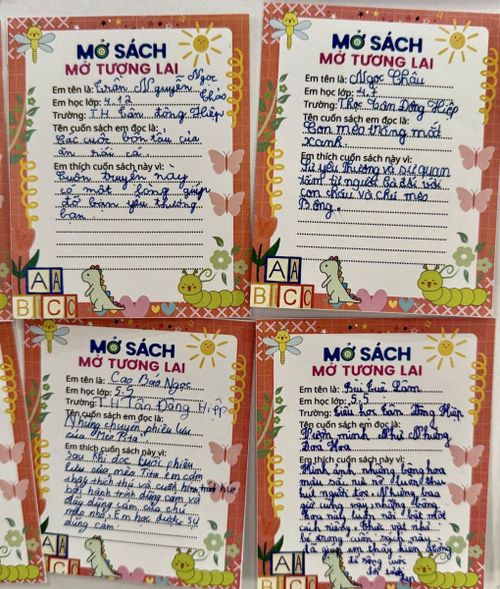 MỞ SÁCH
MỞ TƯƠNG LAI
Em tên là: Trần Nguyễn Ngọc
Châu
Em học lớp: 4.12
Trường: TH Tân đông Hiệp
Tên cuốn sách em đọc là:
Các cuốn bọn tàu của
ăn nấu cá.
Em thích cuốn sách này vì:
Cuốn truyện này
có một lòng giúp
đỡ bạn yêu thương
bạn.
A A
B C C
MỞ SÁCH
MỞ TƯƠNG LAI
Em tên là: Ngọc Châu
Em học lớp: 4.7
Trường: Thọc Tân Đông Hiệp
Tên cuốn sách em đọc là:
Con mèo trắng mắt
xanh.
Em thích cuốn sách này vì:
Từ yêu thương và sự quan
tâm từ người bà đối với
con cháu và chú mèo
Bông.
A A
B C C
MỞ SÁCH
MỞ TƯƠNG LAI
Em tên là: Cao Bảo Ngọc
Em học lớp: 5.2
Trường: TH Tân Đông Hiệp
Tên cuốn sách em đọc là:
Những chuyến phiêu lưu
của Mèo Pita
Em thích cuốn sách này vì:
Sau khi đọc cuộc phiêu
lưu của mèo Pita em cảm
thấy thích thú và cuốn hút
bởi hành trình dũng cảm và
đầy dũng cảm của chú
mèo nhỏ. Em học được sự
dũng cảm
A A
B C C
MỞ SÁCH
MỞ TƯƠNG LAI
Em tên là: Bùi Tuệ Lam
Em học lớp: 5.5
Trường: Tiểu học Tân Đông Hiệp
Tên cuốn sách em đọc là:
Vườn mình Như Những
Đoá Hoa
Em thích cuốn sách này vì:
Hình ảnh những bông hoa
màu sắc rực rỡ luôn thu
hút người đọc. Những bao
giờ cũng vậy những bông
hoa này luôn nổi bật một
cách riêng. Thức vật nhỏ
bé trong cuốn sách này
đã giúp em thấy